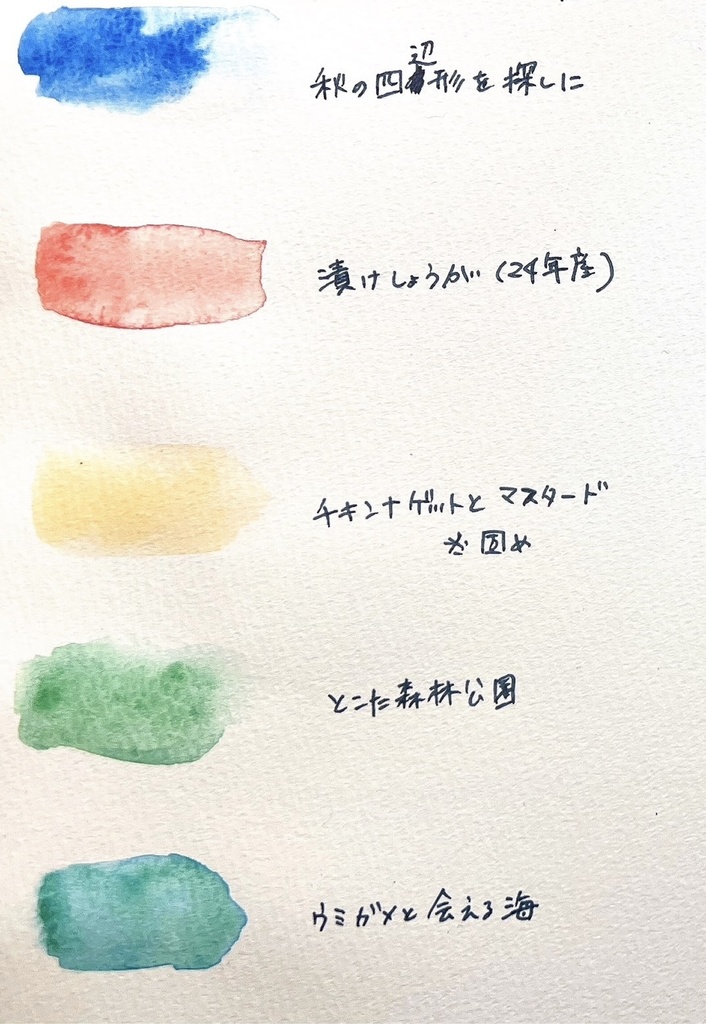 秋の四辺形を探しに
漬けしょうが(24年産)
チキンナゲットとマスタード
※固め
とこた森林公園
ウミガメと会える海